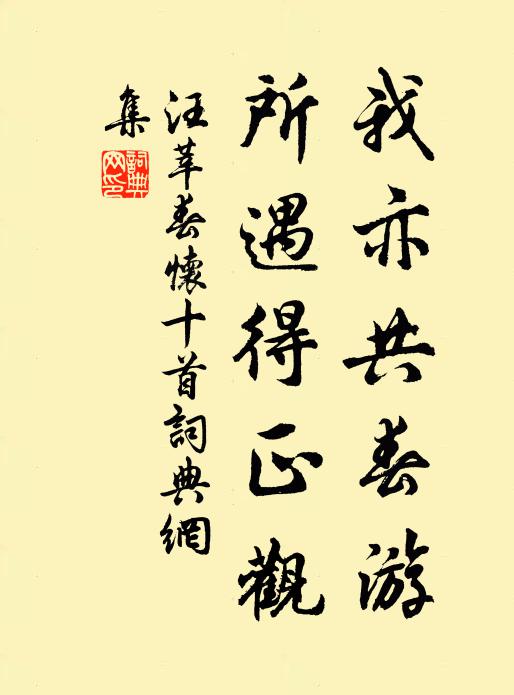 我亦共春游
所遇得正觀
汪莘春懷十首詞典網
集
詞典
网印